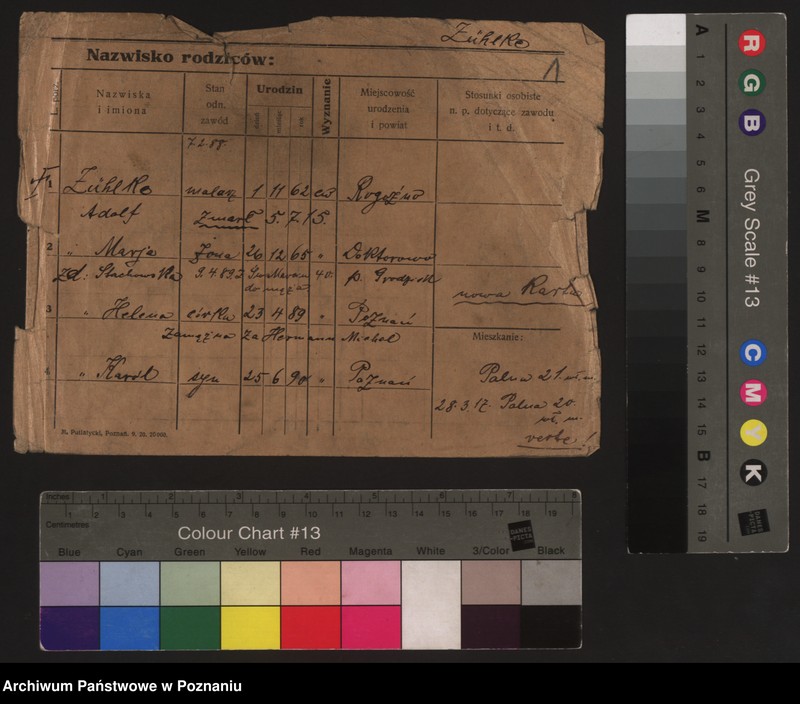 Zühlke
Nazwisko rodziców:
1
L. porz.
Nazwiska i imiona
Stan odn. zawód
Urodzin
dzień
miesiąc
rok
Wyznanie
Miejscowość urodzenia i powiat
Stosunki osobiste n. p. dotyczące zawodu i t. d.
7.2.88.
1 Zühlke malarz 1 11 62 ew Rogoźno
Adolf zmarł 5.7.15.
2 " Marja żona 26 12 65 " Doktorowo
zd: Stachowska do męża p. Grodzisk
nowa Karta
3 " Helena córka 23 4 89 " Poznań
Zamężna za Hermann Michel
Mieszkanie:
4 " Karol syn 25 6 90 " Poznań
Palna 21
28.3.17. Palna 20.
verte!
M. Putiatycki, Poznań. 9. 20.
Inches 1 2 3 4 5 6 7 8
Centimetres 1 2 3 4 5 6 7 8 9 10 11 12 13 14 15 16 17 18 19
Colour Chart #13
DANES PICTA
Blue Cyan Green Yellow Red Magenta White 3/Color Black
A 1 2 3 4 5 6 M 8 9 10 11 12 13 14 15 B 17 18 19
R G B
Grey Scale #13
C M Y K
DANES PICTA
Archiwum Państwowe w Poznaniu